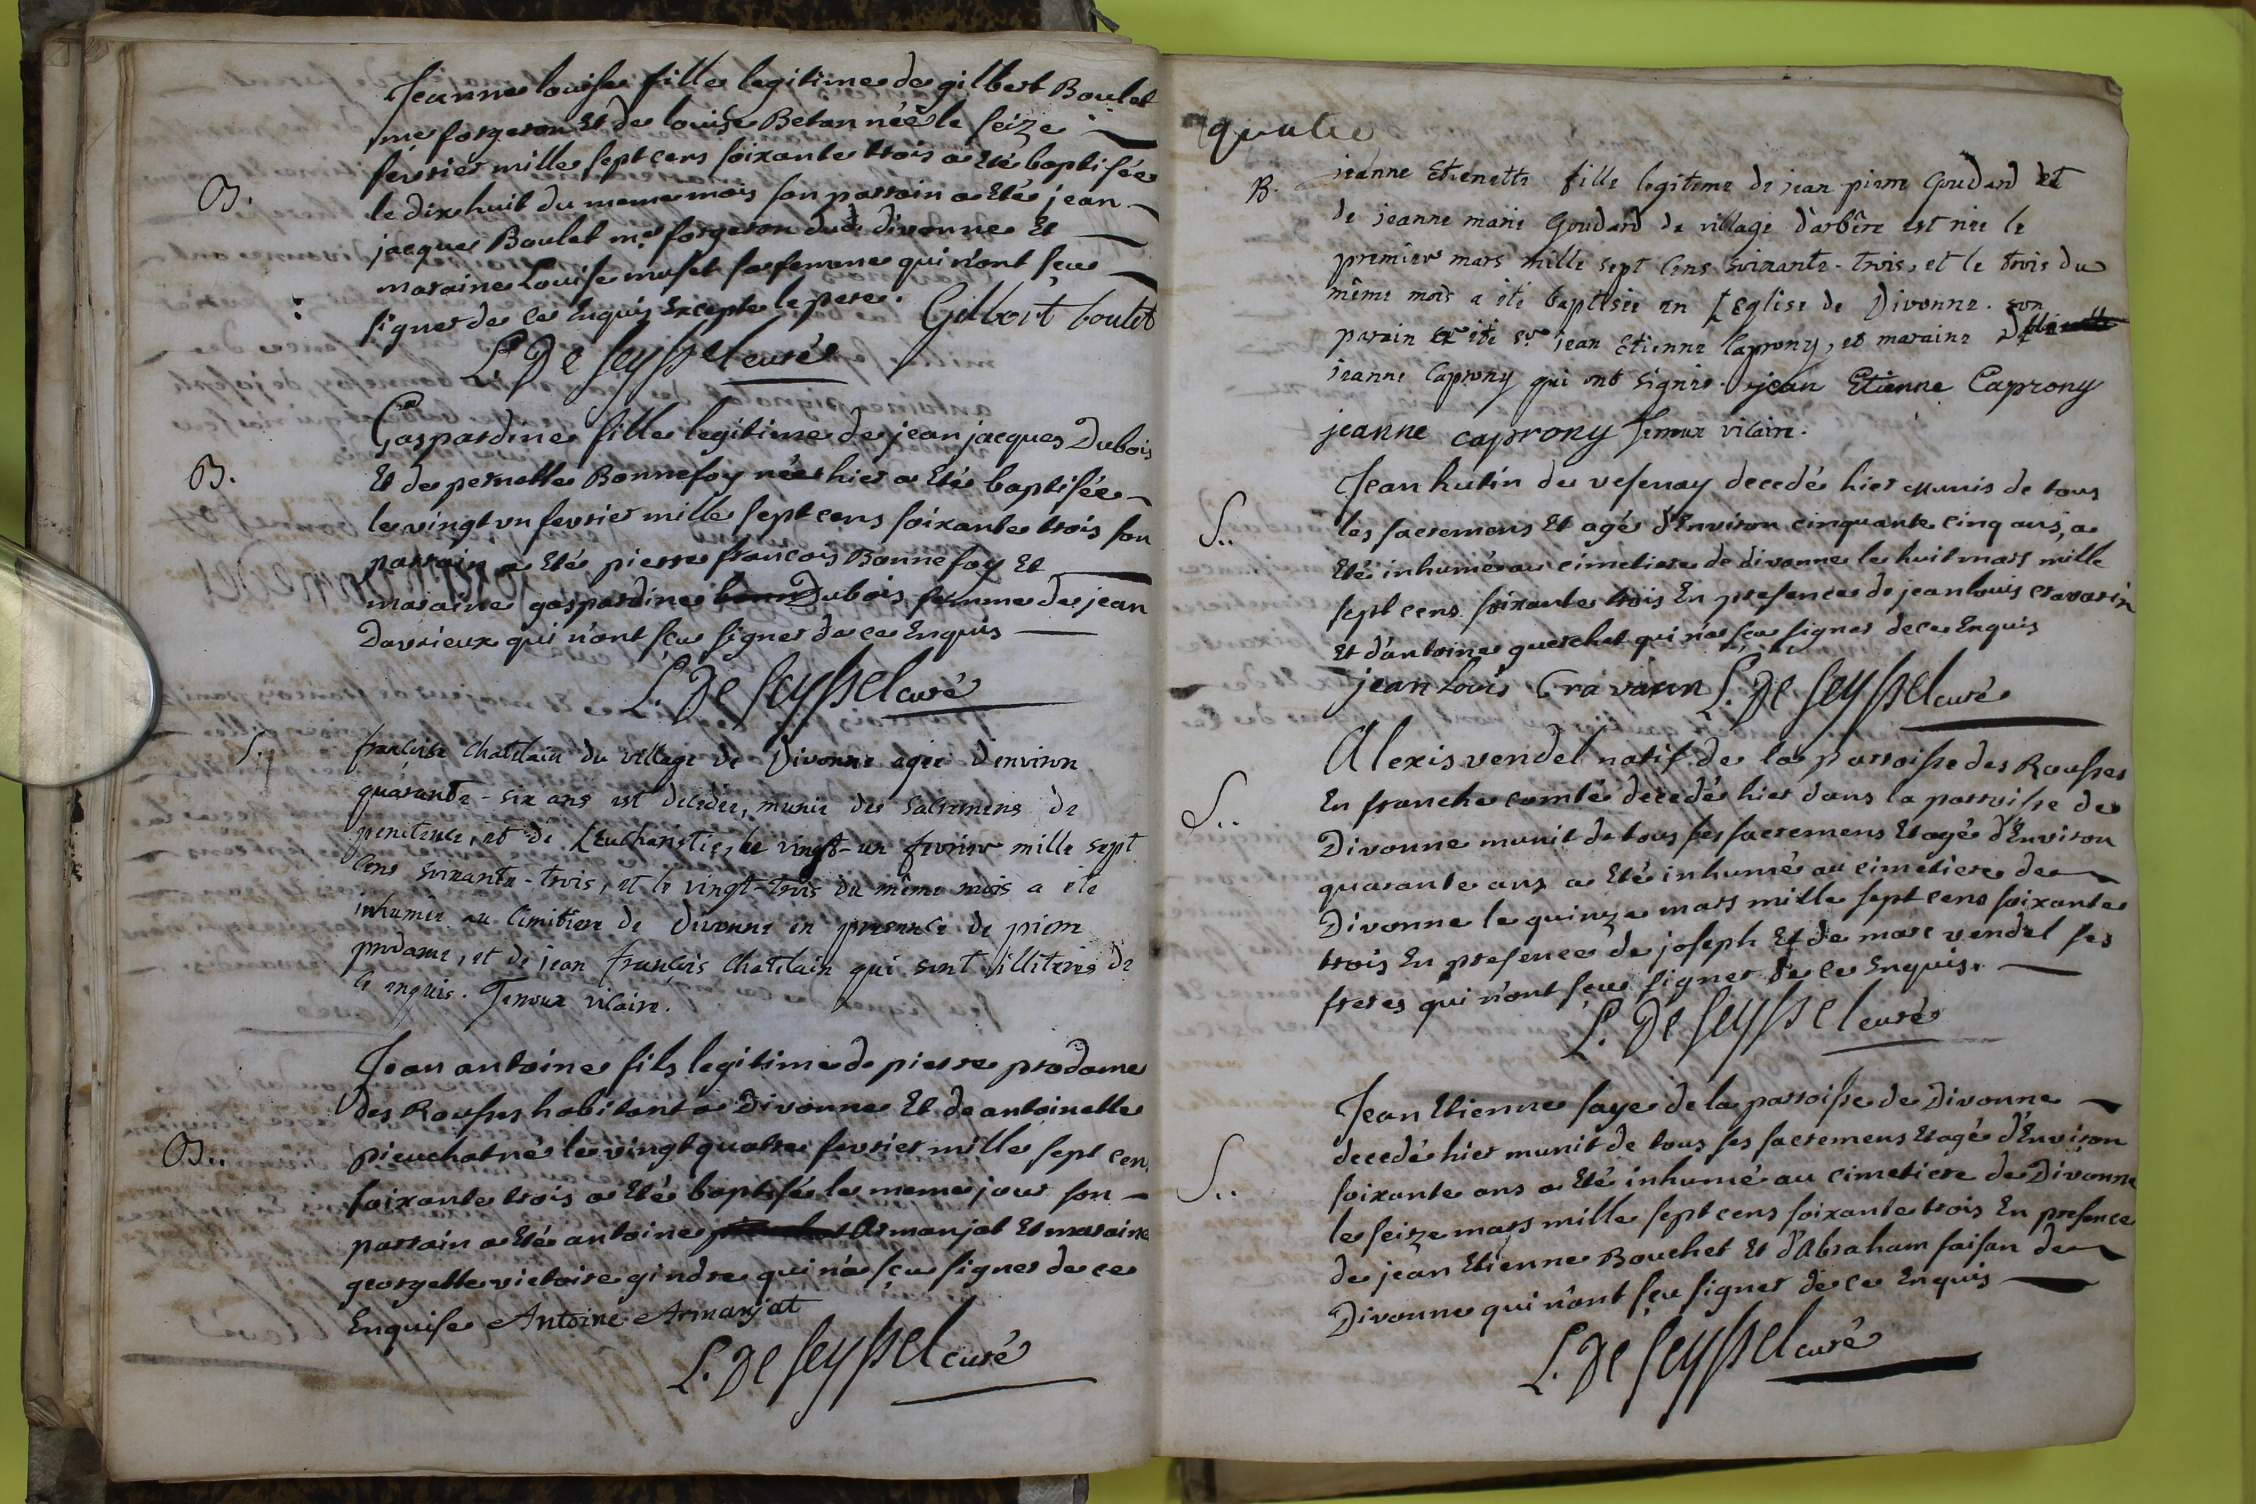 Jeanne louise fille legitime de gilbert Boulet
me forgeron Et de louise Betan née le seize
fevrier mille sept cens soixante trois a Eté baptisée
B.
le dix huit du meme mois son parrain a Eté jean
jacque Boulet me forgeron dud divonne Et
maraine Louise muset sa femme qui n'ont sçeu
signer de ce Enquis Excepte le pere. Gilbert boulet
L. De Seyssel curé
Gaspardine fille legitime de jean jacques Dubois
B.
Et de pernette Bonnefoy née hier a Eté baptisée
le vingt vn fevrier mille sept cens soixante trois son
parrain a Eté pierre francois Bonnefoy Et
maraine gaspardine Dubois femme de jean
Davrieux qui n'ont sçu signer de ce Enquis
L. De Seyssel curé
S.
françoise Chatelain du village de Divonne agée d'environ
quarante-six ans est decedée, munie des sacremens de
penitence, et de L'eucharistie, le vingt-un fevrier mille sept
cens soixante-trois, et le vingt-trois du même mois a été
inhumée au cimitiere de divonne en presence de pierre
prodame, et de jean françois Chatelain qui sont illiterés de
ce enquis. Fenoux vicaire.
Jean antoine fils legitime de pierre prodame
des Rousses habitant a Divonne Et de antoinette
B..
pieuchat né le vingt quatre fevrier mille sept cens
soixante trois a Eté baptisé le meme jour son
parrain a Eté antoine Armanjat Et maraine
georgette victoire gindre qui n'a sçu signer de ce
Enquise Antoine Armanjat
L. De Seyssel curé
quatre
B.
jeanne Etienette fille legiteme de jean pierre Goudard et
de jeanne marie Goudard de village d'arbêre est née le
premier mars mille sept cens soixante-trois, et le trois du
même mois a été baptisée en L'Eglise de Divonne. son
parain a été sr jean Etienne Caprony, et maraine Dlle
jeanne Caprony qui ont signés. jean Etienne Caprony
jeanne caprony Fenoux vicaire.
Jean hutin de vesenay decedé hier munis de tous
S..
les sacremens Et agé d'Environ cinquante cinq ans, a
Eté inhumé au cimetiere de divonne le huit mars mille
sept cens soixante trois En presence de jean louis cravarin
Et d'antoine querchet qui n'a sçu signer de ce Enquis
jean Louis Cravarin L. De Seyssel curé
Alexis vendel natif de la parroisse des Rousses
En franche comté decedé hier dans la parroisse de
S..
Divonne munit de tous ses sacremens Et agé d'Environ
quarante ans a Eté inhumé au cimetiere de
Divonne le quinze mars mille sept cens soixante
trois En presence de joseph Et de marc vendel ses
freres qui n'ont sçeu signer de ce Enquis.
L. De Seyssel curé
Jean Etienne saye de la parroisse de Divonne
decedé hier munit de tous ses sacremens Et agé d'Environ
S..
soixante ans a Eté inhumé au cimetiere de Divonne
le seize mars mille sept cens soixante trois En presence
de jean Etienne Bouchet Et d'Abraham faisan de
Divonne qui n'ont sçu signer de ce Enquis
L. De Seyssel curé